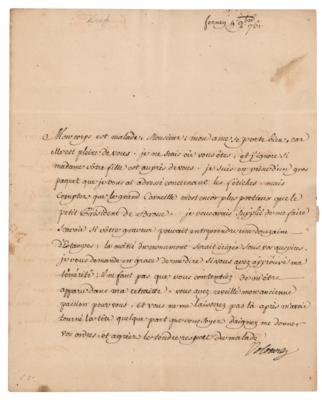 ferney 4e xbre 1761
Mon corps est malade, Monsieur; mon ame se porte bien, car
elle est pleine de vous. je ne sais où vous êtes; et j'ignore si
madame votre fille est auprès de vous. je suis en peine d'un gros
paquet que je vous ai adressé concernant les fétiches. mais
comptez que le grand Corneille m'est encor plus prétieux que le
petit Président de Brosse. je vous avais supplié de me faire
savoir si votre graveur pouvait entreprendre une douzaine
d'estampes; la moitié du monument serait érigée sous vos auspices.
je vous demande en grace de me dire si vous avez approuvé ma
témérité. Il ne faut pas que vous vous contentiez de m'être
apparu dans ma retraitte. vous avez éveillé mon ancienne
passion pour vous, et vous ne me laisserez pas là après m'avoir
tourné la tête. quelque part que vous soyez daignez me donner
vos ordres, et agréer le tendre respect du malade
Voltaire